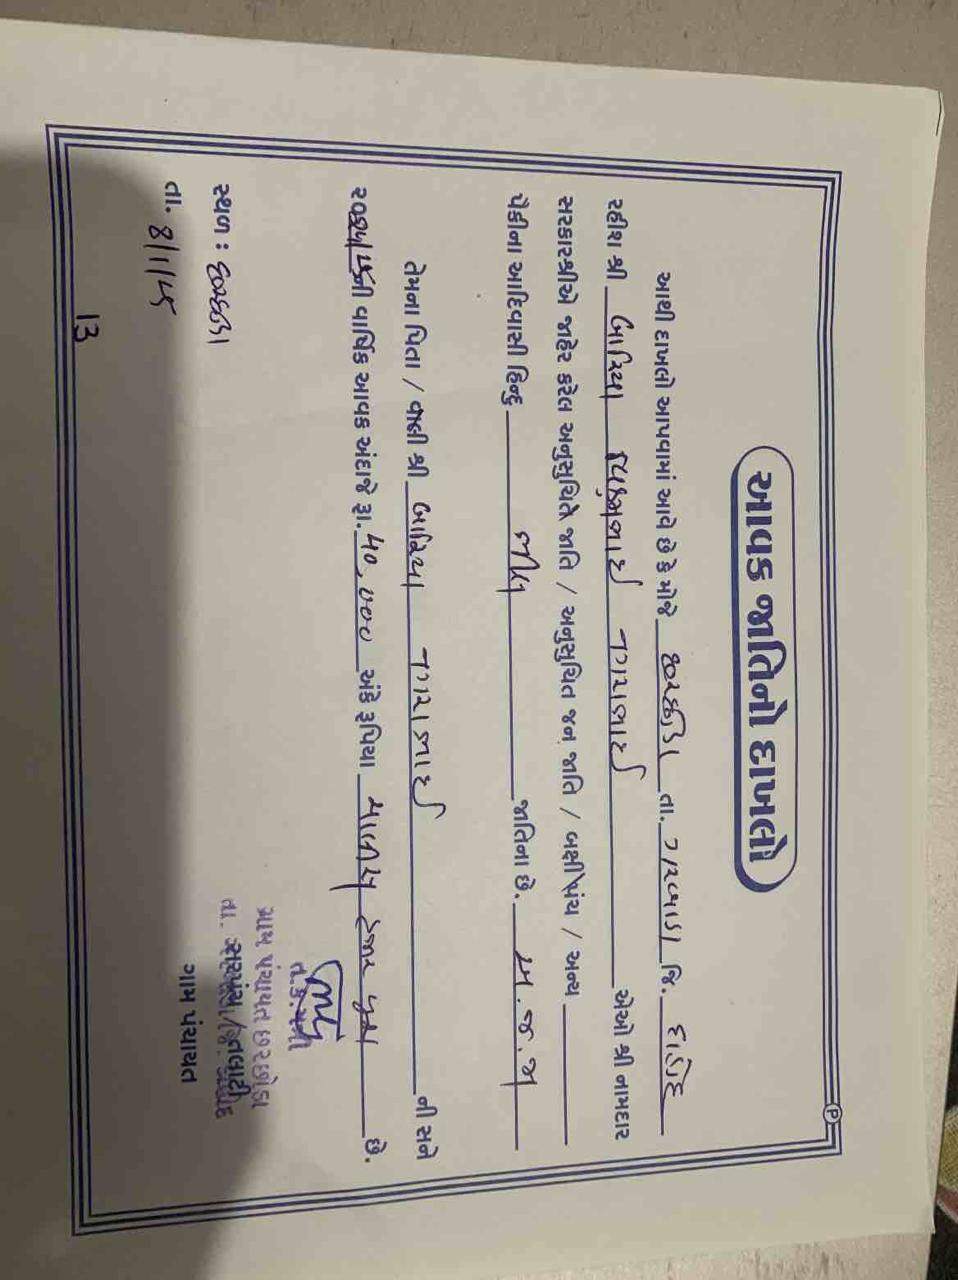 આવક જાતિનો દાખલો
આથી દાખલો આપવામાં આવે છે કે મોજે છરછોડા તા. ગરબાડા જિ. દાહોદ
રહીશ શ્રી બારિયા નગરાભાઈ એઓ શ્રી નામદાર
સરકારશ્રીએ જાહેર કરેલ અનુસુચિત જાતિ / અનુસુચિત જન જાતિ / બક્ષીપંચ / અન્ય
પૈકીના આદિવાસી હિન્દુ ભીલ જાતિના છે. અ.જ.જા
તેમના પિતા / વાલી શ્રી બારિયા નગરાભાઈ ની સને
ની વાર્ષિક આવક અંદાજે રૂા. ૪૦,૦૦૦ અંકે રૂપિયા ચાળીસ હજાર પુરા છે.
સ્થળ : છરછોડા
તા. ૪/૧/૨૫
13
ગ્રામ પંચાયત છરછોડા
તા.
સરપંચ / તલાટી
ગ્રામ પંચાયત
P